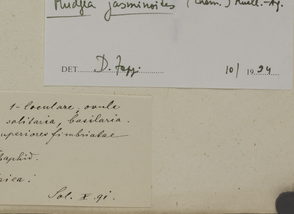 Rudgea jasminoides (Cham.) Muell.-Arg.
DET. D. Zappi 10/ 1994
1-loculare, ovulo
solitaria, basilaria.
superiores fimbriatae
Raphid.
Set. X. 91.